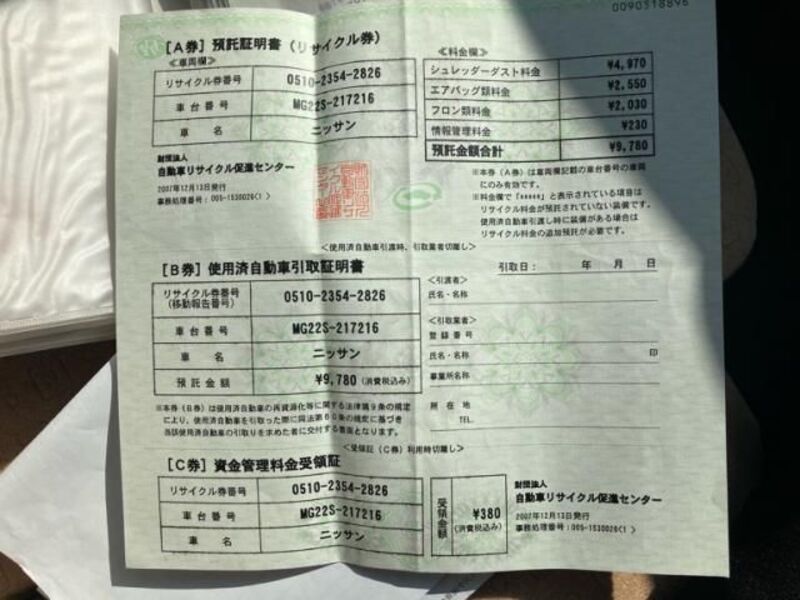 0090318896
[A券] 預託証明書 (リサイクル券)
≪車両欄≫
リサイクル券番号 0510-2354-2826
車台番号 MG22S-217216
車名 ニッサン
財団法人
自動車リサイクル促進センター
2007年12月13日発行
事務処理番号:005-1530026(1 )
≪料金欄≫
シュレッダーダスト料金 ¥4,970
エアバッグ類料金 ¥2,550
フロン類料金 ¥2,030
情報管理料金 ¥230
預託金額合計 ¥9,780
※本券(A券)は車両欄記載の車台番号の車両
にのみ有効です。
※料金欄で「*****」と表示されている項目は
リサイクル料金が預託されていない装備です。
使用済自動車引渡し時に装備がある場合は
リサイクル料金の追加預託が必要です。
<使用済自動車引渡時、引取業者切離し>
[B券] 使用済自動車引取証明書
引取日: 年 月 日
リサイクル券番号
(移動報告番号) 0510-2354-2826
車台番号 MG22S-217216
車名 ニッサン
預託金額 ¥9,780 (消費税込み)
※本券(B券)は使用済自動車の再資源化等に関する法律第9条の規定
により、使用済自動車を引取った際に同法第80条の規定に基づき
当該使用済自動車の引取りを求めた者に交付する書面となります。
<引渡者>
氏名・名称
<引取業者>
登録番号
氏名・名称 印
事業所名称
所在地
TEL.
<受領証(C券)利用時切離し>
[C券] 資金管理料金受領証
リサイクル券番号 0510-2354-2826
車台番号 MG22S-217216
車名 ニッサン
受領金額 ¥380
(消費税込み)
財団法人
自動車リサイクル促進センター
2007年12月13日発行
事務処理番号:005-1530026(1 )